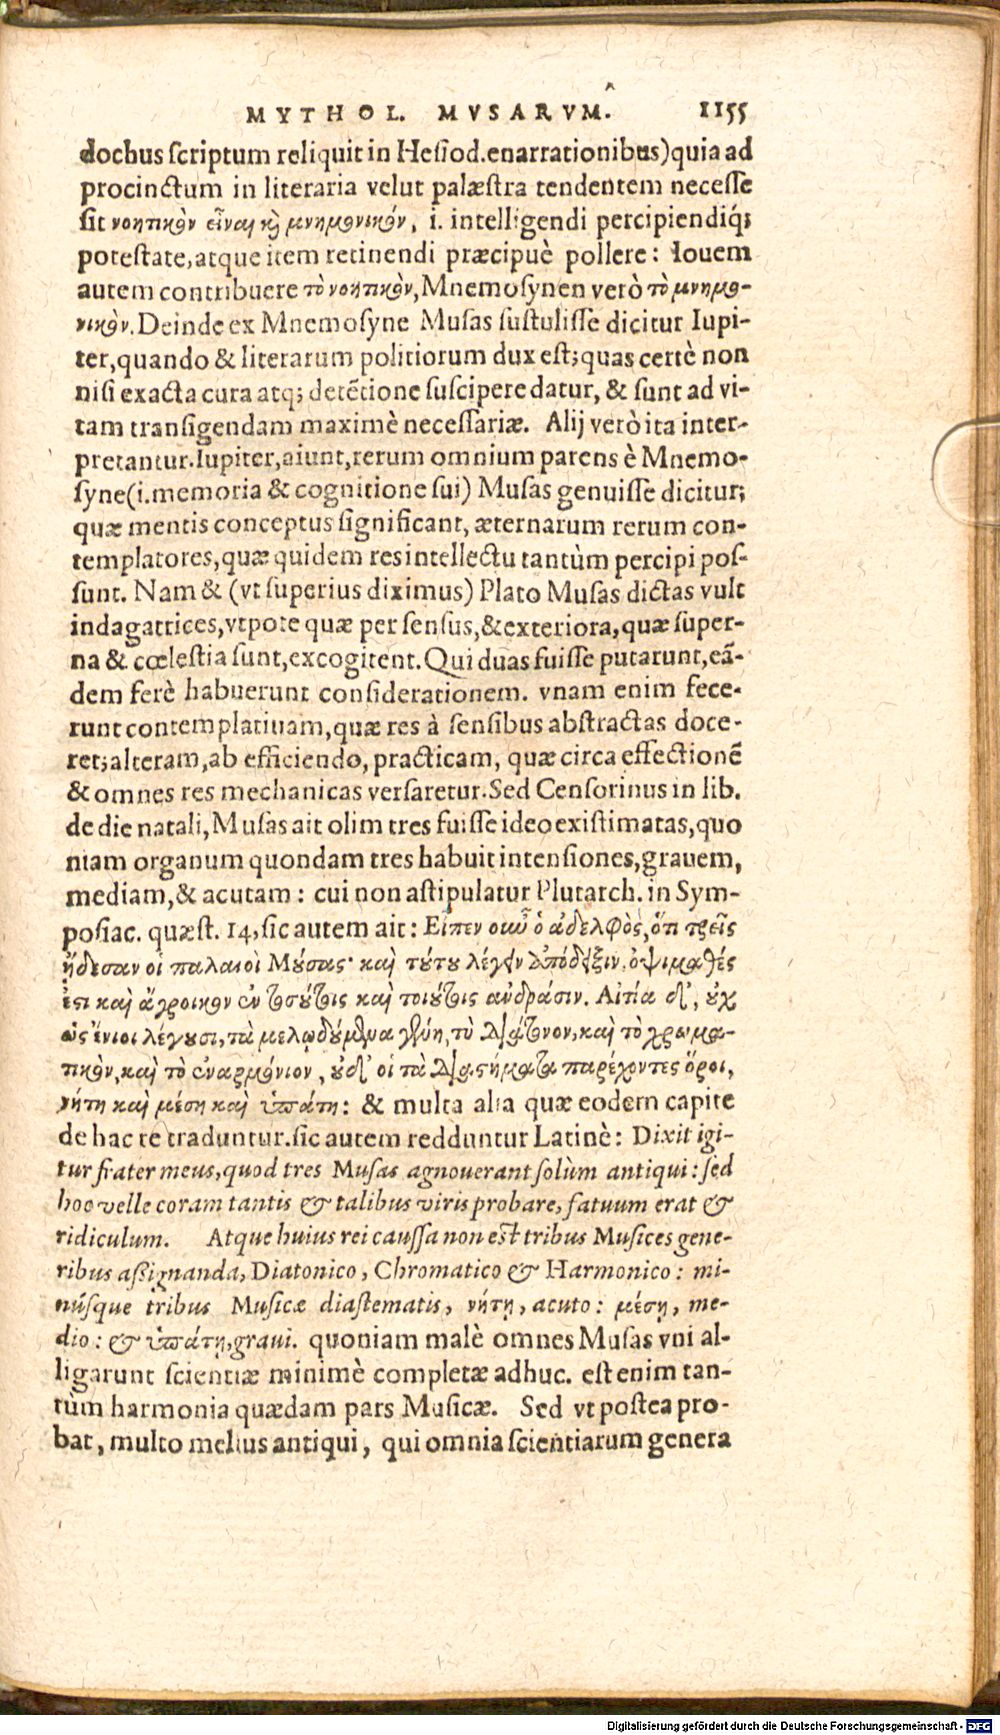 MYTHOL. MVSARVM. 1155
dochus scriptum reliquit in Hesiod. enarrationibus) quia ad
procinctum in literaria velut palæstra tendentem necesse
sit νοητικὸν εἶναι κὶ μνημονικόν, i. intelligendi percipiendiq́;
potestate, atque item retinendi præcipuè pollere: Iouem
autem contribuere τὸ νοητικὸν, Mnemosynen verò τὸ μνημο-
νικὸν. Deinde ex Mnemosyne Musas sustulisse dicitur Iupi-
ter, quando & literarum politiorum dux est; quas certè non
nisi exacta cura atq; detẽtione suscipere datur, & sunt ad vi-
tam transigendam maximè necessariæ. Alij verò ita inter-
pretantur. Iupiter, aiunt, rerum omnium parens è Mnemo-
syne (i. memoria & cognitione sui) Musas genuisse dicitur;
quæ mentis conceptus significant, æternarum rerum con-
templatores, quæ quidem res intellectu tantùm percipi pos-
sunt. Nam & (vt superius diximus) Plato Musas dictas vult
indagatrices, vtpote quæ per sensus, & exteriora, quæ super-
na & cœlestia sunt, excogitent. Qui duas fuisse putarunt, eã-
dem ferè habuerunt considerationem. vnam enim fece-
runt contemplatiuam, quæ res à sensibus abstractas doce-
ret; alteram, ab efficiendo, practicam, quæ circa effectionẽ
& omnes res mechanicas versaretur. Sed Censorinus in lib.
de die natali, Musas ait olim tres fuisse ideo existimatas, quo
niam organum quondam tres habuit intensiones, grauem,
mediam, & acutam: cui non astipulatur Plutarch. in Sym-
posiac. quæst. 14, sic autem ait: Εἶπεν οὖν ὁ ἀδελφὸς, ὅτι τρεῖς
ᾔδεσαν οἱ παλαιοὶ Μούσας· καὶ τούτου λέγειν ἀπόδειξιν, ὀψιμαθές
ἐστι καὶ ἄγροικον ἐν τοσούτοις καὶ τοιούτοις ἀνδράσιν. Αἰτία δ', οὐχ
ὡς ἔνιοι λέγουσι, τὰ μελῳδούμενα γένη, τὸ διάτονον, καὶ τὸ χρωμα-
τικὸν, καὶ τὸ ἐναρμόνιον, οὐδ' οἱ τὰ διαστήματα παρέχοντες ὅροι,
νήτη καὶ μέση καὶ ὑπάτη: & multa alia quæ eodem capite
de hac re traduntur. sic autem redduntur Latinè: Dixit igi-
tur frater meus, quod tres Musas agnouerant solùm antiqui: sed
hoc velle coram tantis & talibus viris probare, fatuum erat &
ridiculum. Atque huius rei caussa non est tribus Musices gene-
ribus assignanda, Diatonico, Chromatico & Harmonico: mi-
núsque tribus Musicæ diastematis, νήτῃ, acuto: μέσῃ, me-
dio: & ὑπάτῃ, graui. quoniam malè omnes Musas vni al-
ligarunt scientiæ minimè completæ adhuc. est enim tan-
tùm harmonia quædam pars Musicæ. Sed vt postea pro-
bat, multo melius antiqui, qui omnia scientiarum genera
Digitalisierung gefördert durch die Deutsche Forschungsgemeinschaft - DFG